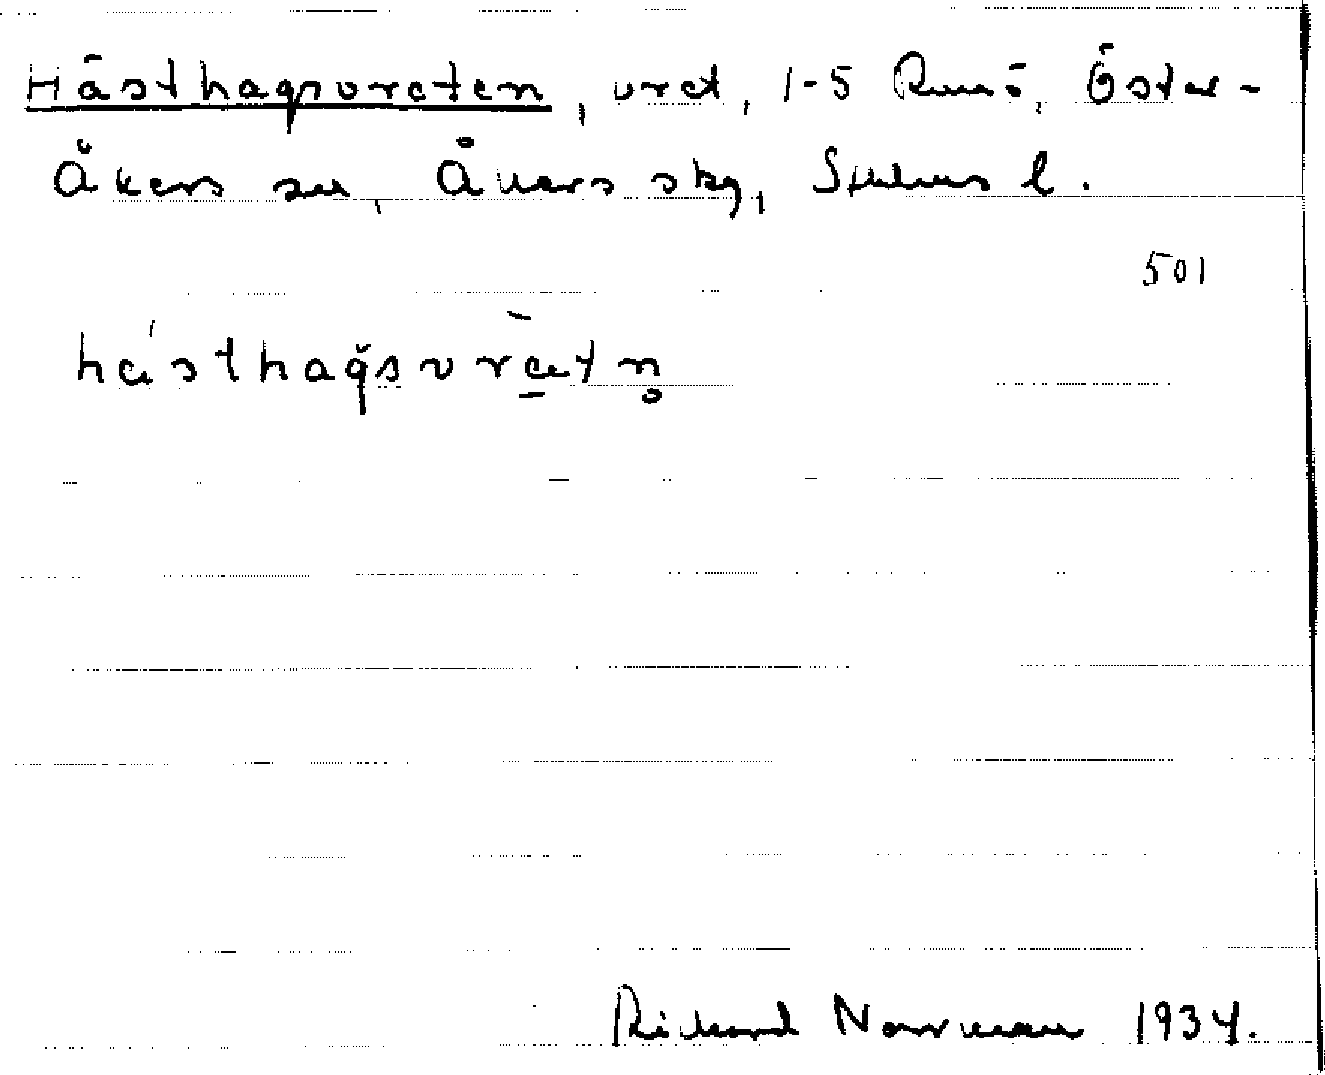 Hästhagsvreten, vret, 1-5 Runö, Öster-
Åkers sn, Åkers skg, Sthlms l.
501
hästhagsvrætn̥
Richard Norrman 1934.